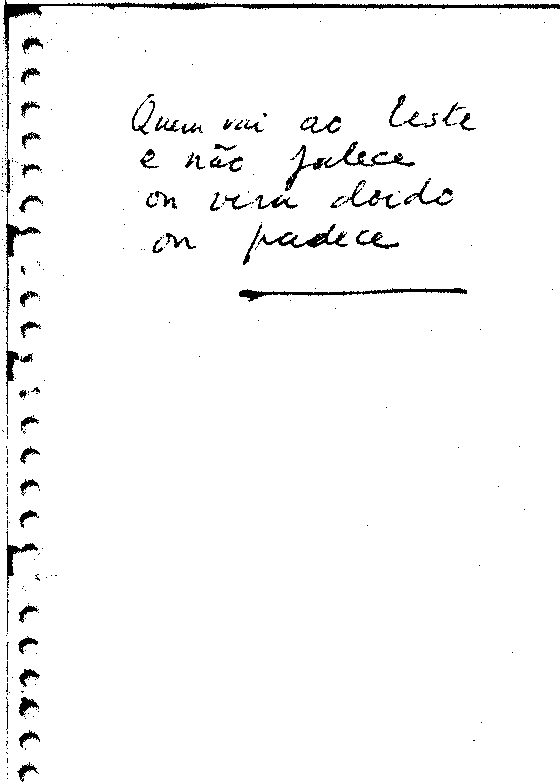 Quem vai ao leste
e não falece
ou vira doido
ou padece